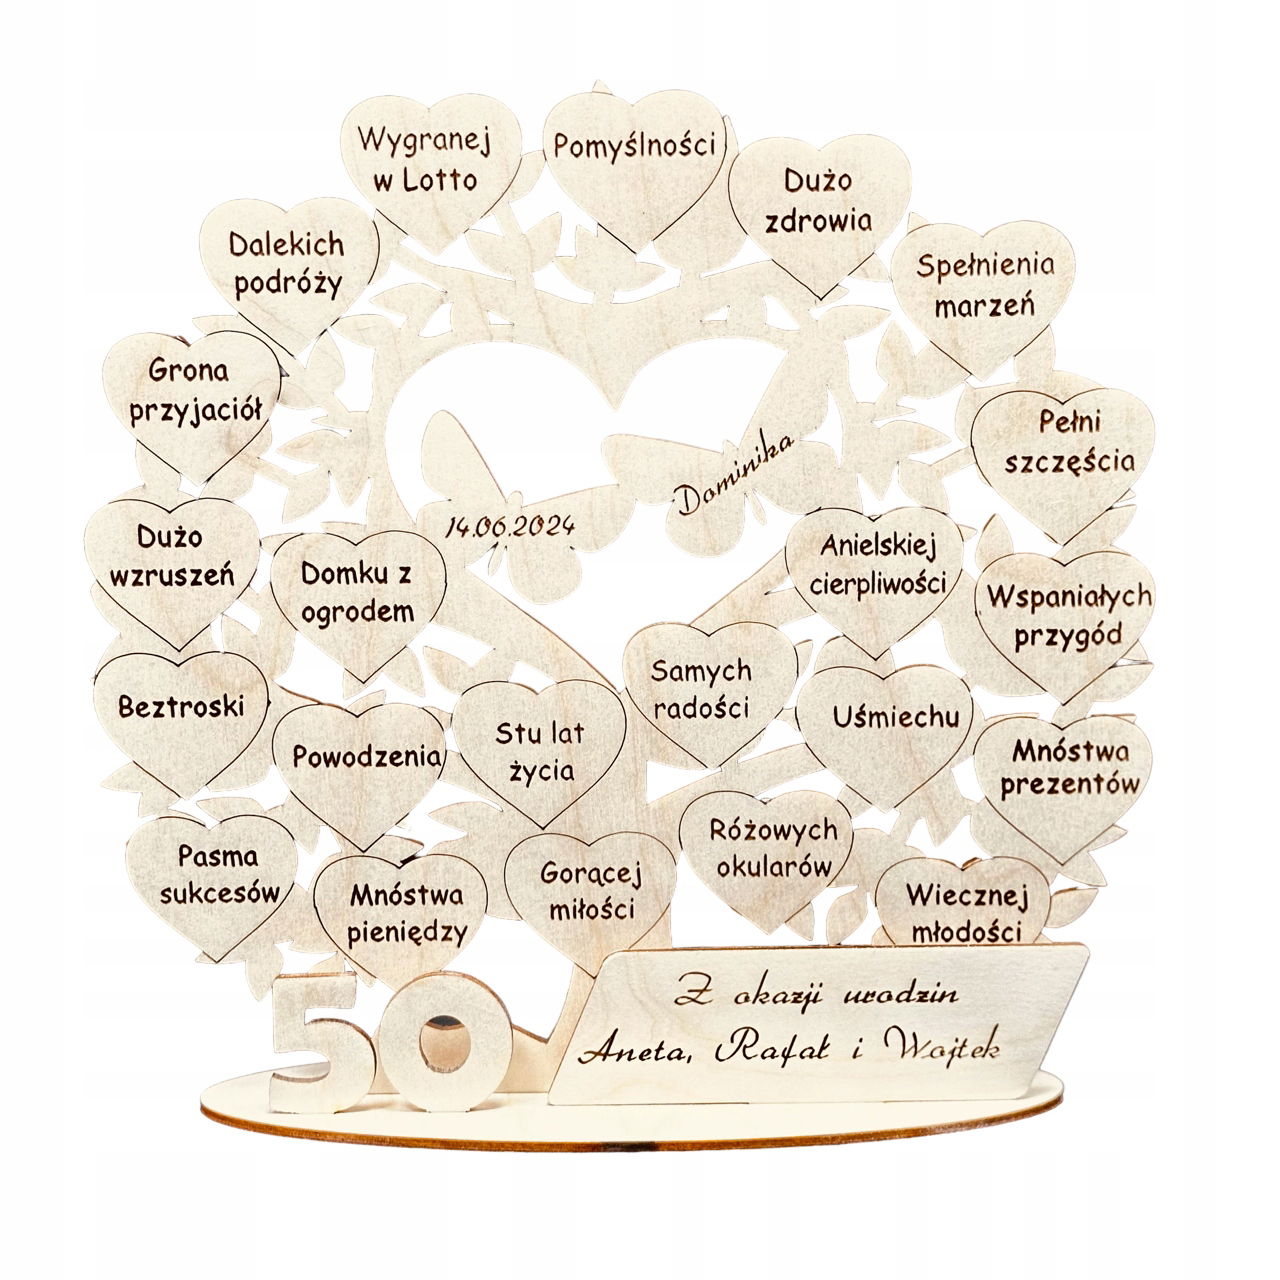 Wygranej
w Lotto
Pomyślności
Dużo
zdrowia
Dalekich
podróży
Spełnienia
marzeń
Grona
przyjaciół
Pełni
szczęścia
Dominika
14.06.2024
Dużo
wzruszeń
Domku z
ogrodem
Anielskiej
cierpliwości
Wspaniałych
przygód
Beztroski
Powodzenia
Stu lat
życia
Samych
radości
Uśmiechu
Mnóstwa
prezentów
Pasma
sukcesów
Mnóstwa
pieniędzy
Gorącej
miłości
Różowych
okularów
Wiecznej
młodości
50
Z okazji urodzin
Aneta, Rafał i Wojtek